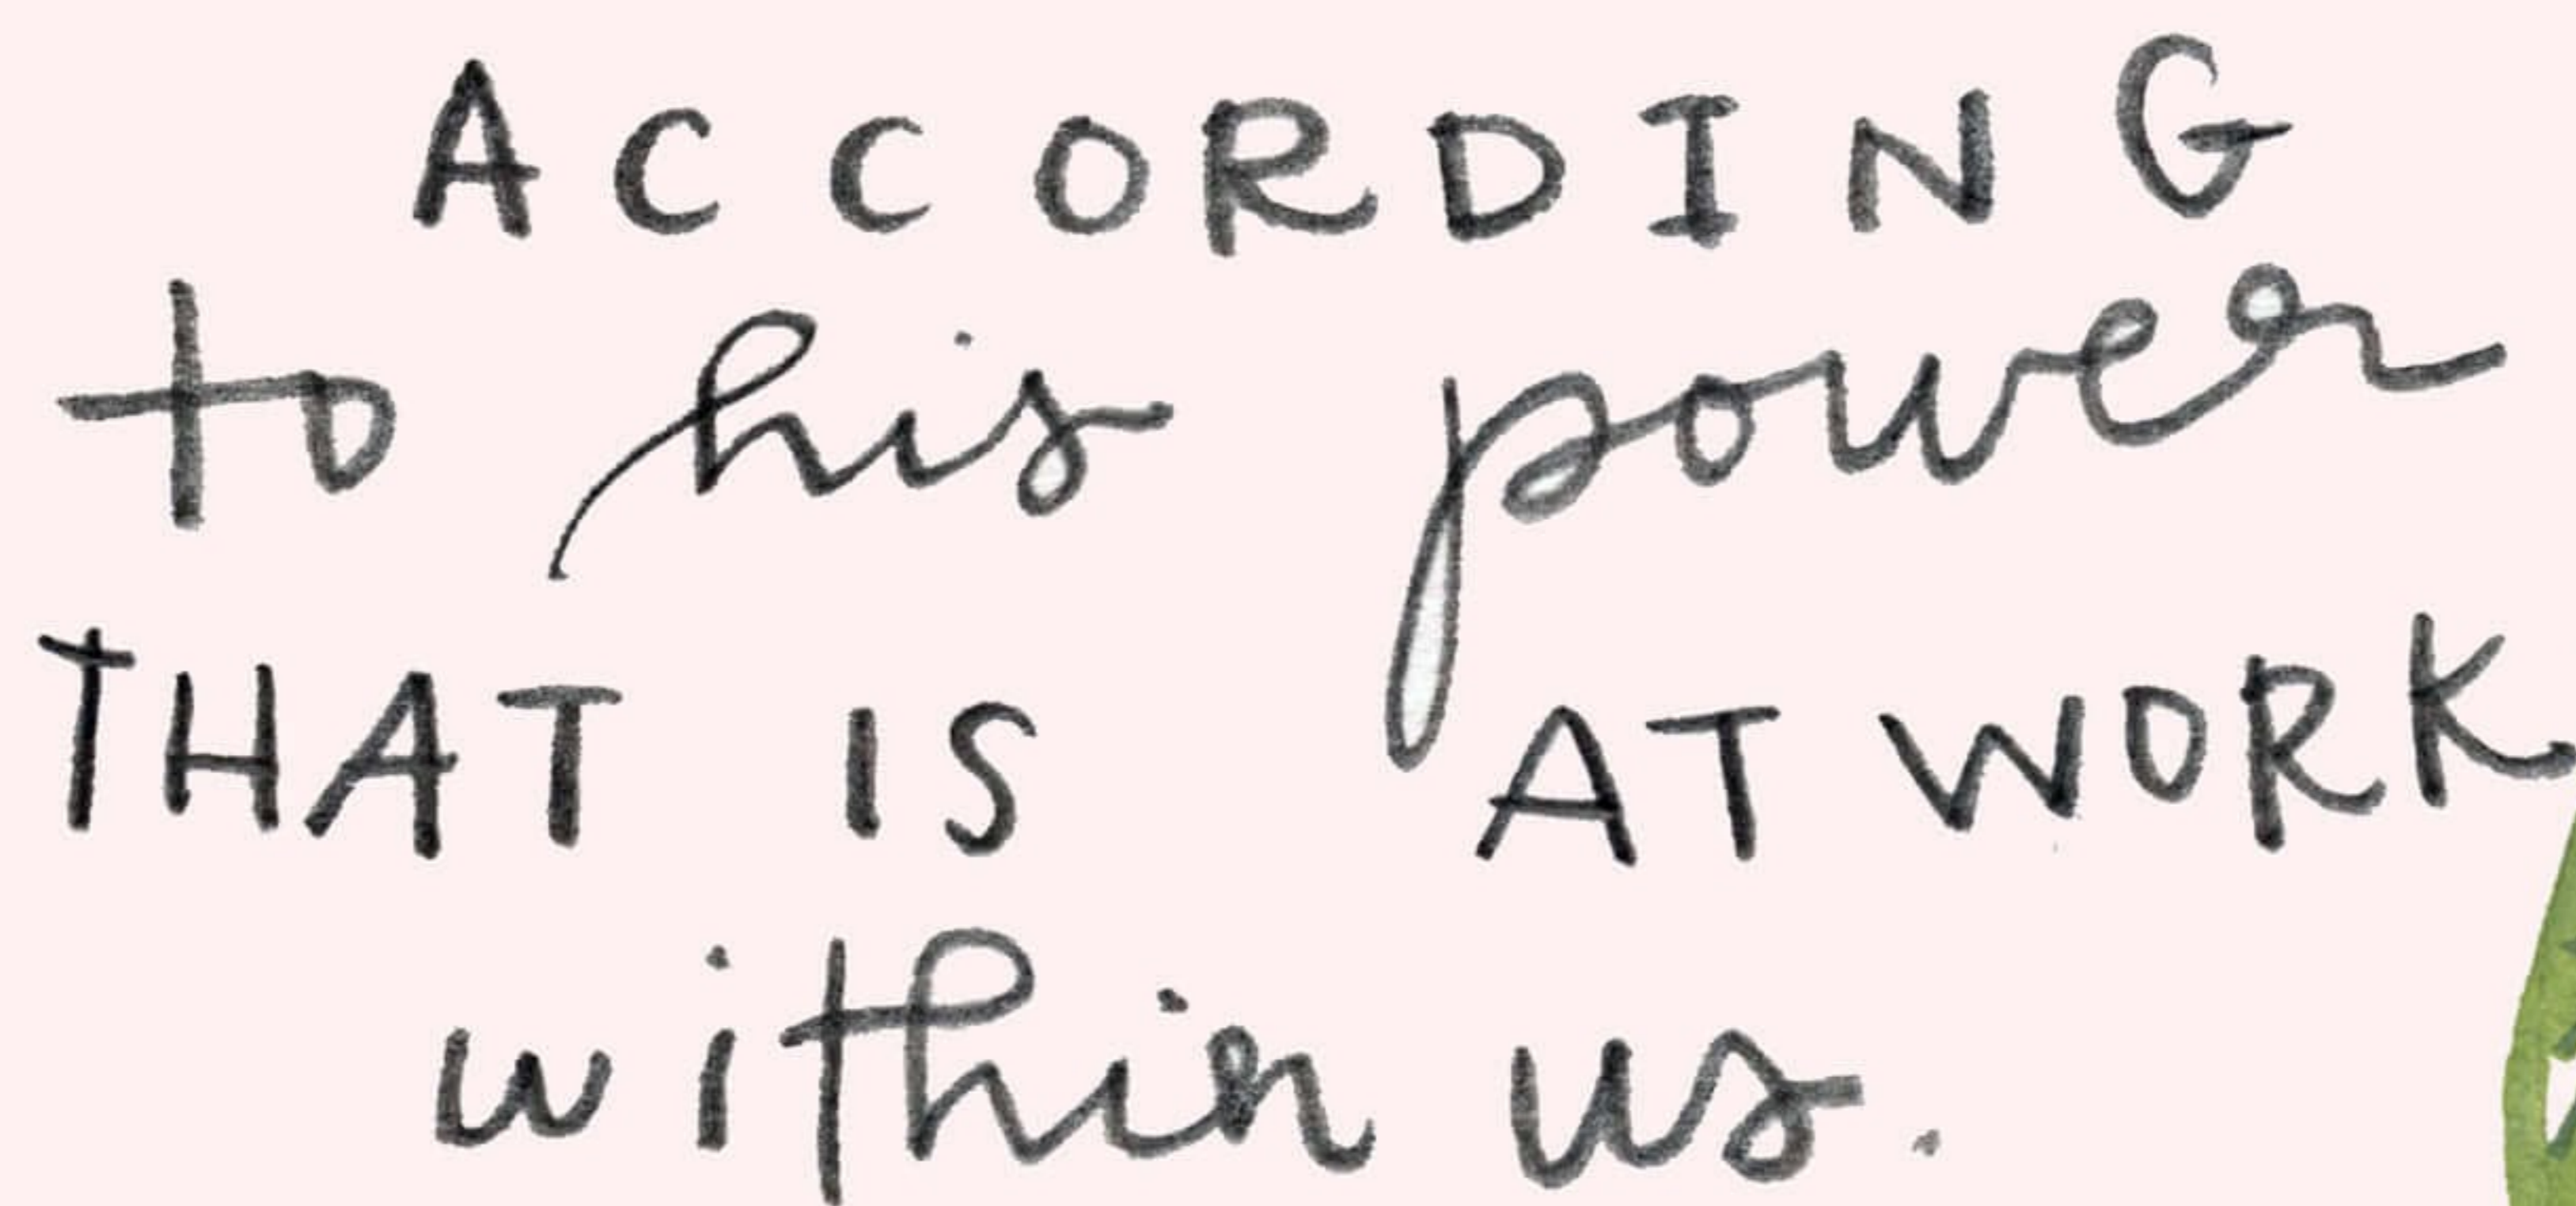 ACCORDING
to his power
THAT IS AT WORK
within us.